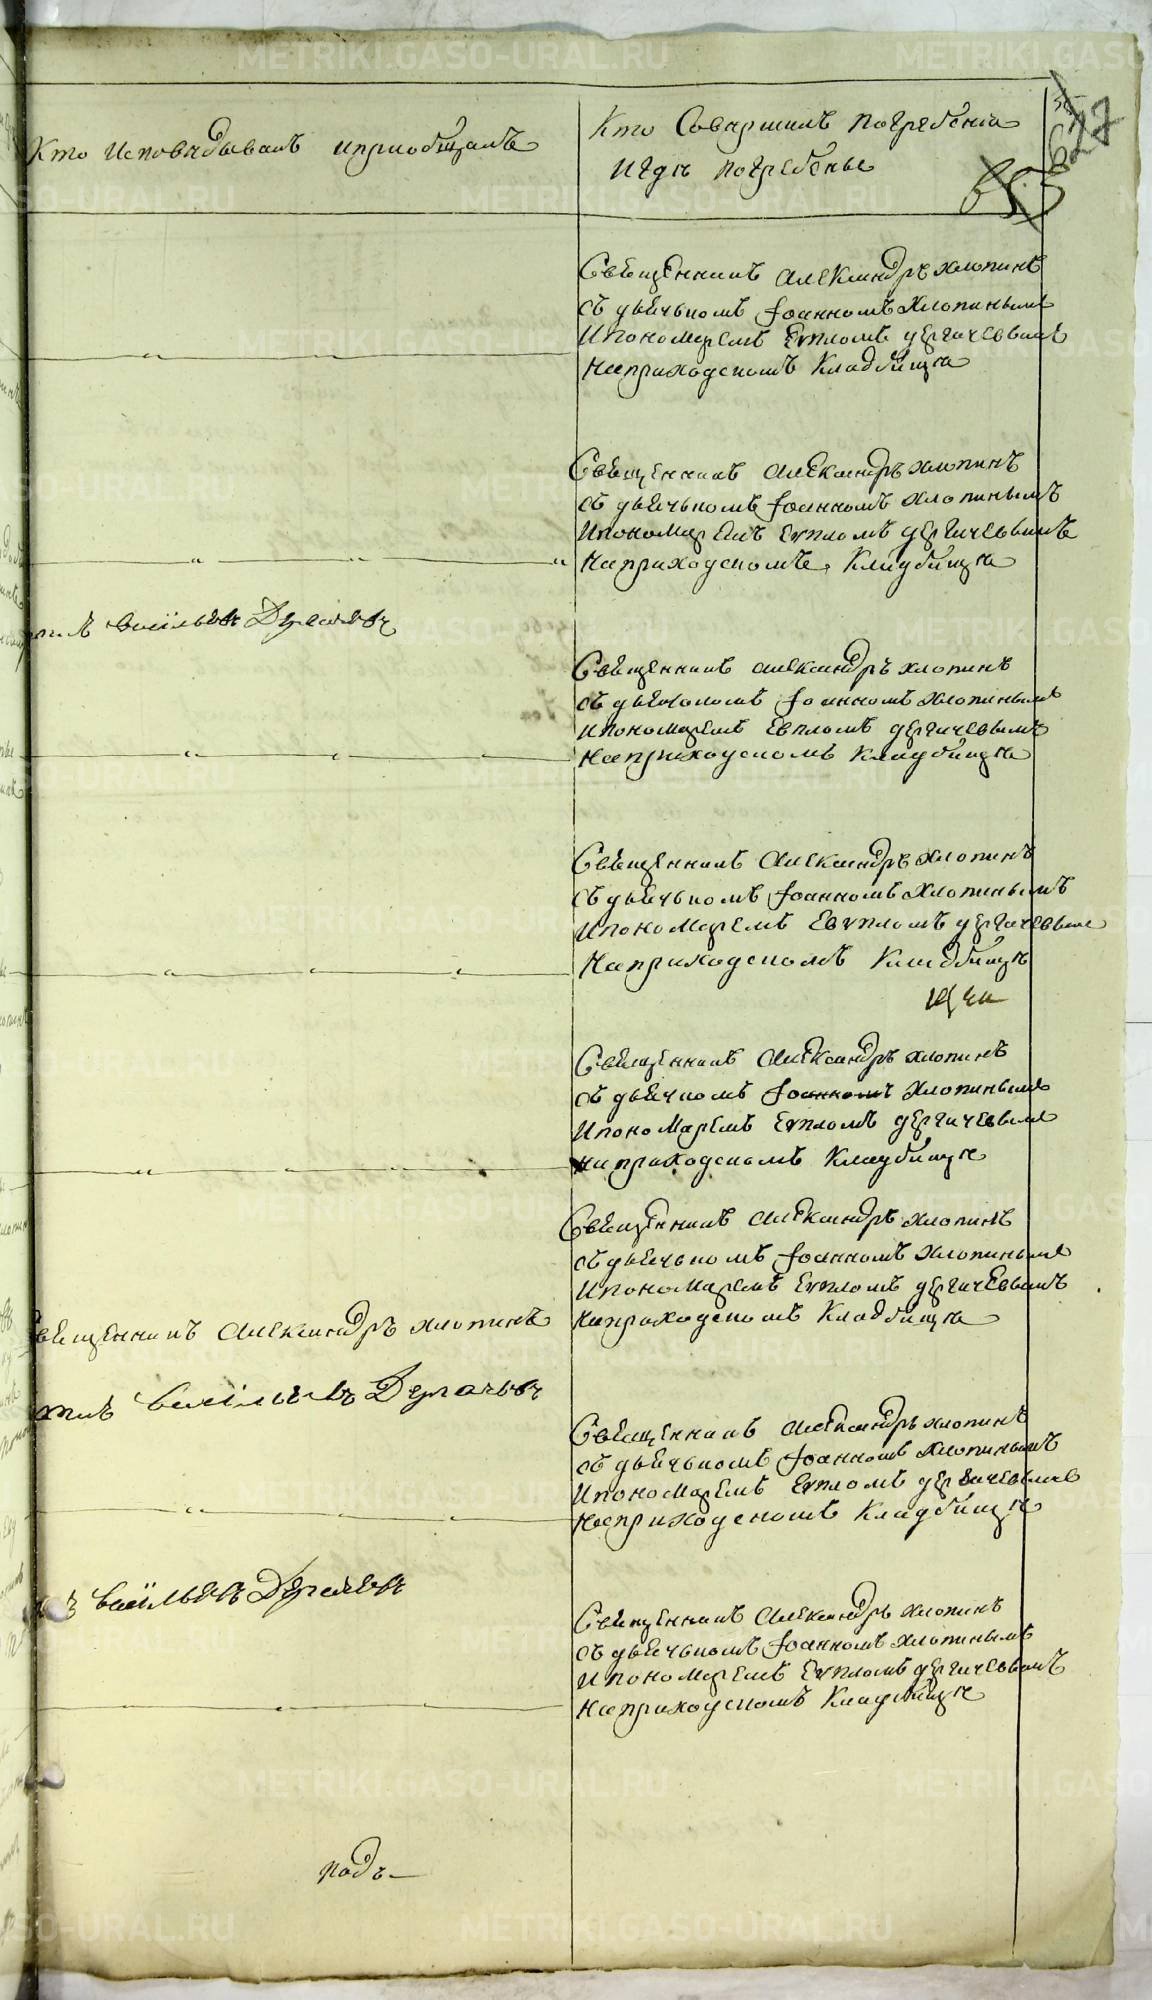 Кто Исповѣдывалъ и приобщалъ
Кто Совершилъ погребенiя
и гдѣ погребенъ
653
627
Священникъ Александръ Хлопинъ
съ дьячькомъ Iоанномъ Хлопинымъ
и пономаремъ Еvпломъ Дергачевымъ
На приходскомъ Кладбищѣ
Священникъ Александръ Хлопинъ
съ дьячькомъ Iоанномъ Хлопинымъ
и пономаремъ Еvпломъ Дергачевымъ
На приходскомъ Кладбищѣ
Василь
Священникъ Александръ Хлопинъ
съ дьячкомъ Iоанномъ Хлопинымъ
и пономаремъ Евпломъ Дергачевымъ
На приходскомъ Кладбищѣ
Священникъ Александръ Хлопинъ
съ дьячькомъ Iоанномъ Хлопинымъ
и пономаремъ Евvпломъ Дергачевым
На приходскомъ Кладбищѣ
Священникъ Александръ Хлопинъ
съ дьячкомъ Iоанномъ Хлопинымъ
и пономаремъ Еvпломъ Дергачевым
на приходскомъ Кладбищѣ
Священникъ Александръ Хлопинъ
съ дьячькомъ Iоанномъ Хлопинымъ
и пономаремъ Еvпломъ Дергачевымъ
На приходскомъ Кладбищѣ
вященникъ Александръ Хлопинъ
Священникъ Александръ Хлопинъ
съ дьячькомъ Iоанномъ Хлопинымъ
и пономаремъ Еvпломъ Дергачевымъ
На приходскомъ Кладбищѣ
Священникъ Александръ Хлопинъ
съ дьячькомъ Iоанномъ Хлопинымъ
и пономаремъ Еvпломъ Дергачевымъ
На приходскомъ Кладбищѣ
подъ
METRIKI.GASO-URAL.RU